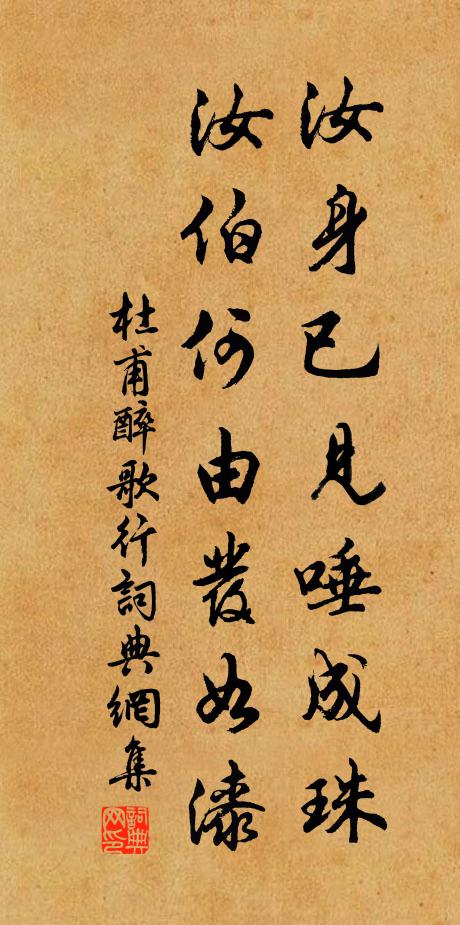 汝身已見唾成珠
汝伯何由發如漆
杜甫醉歌行詞典網集
詞典網印